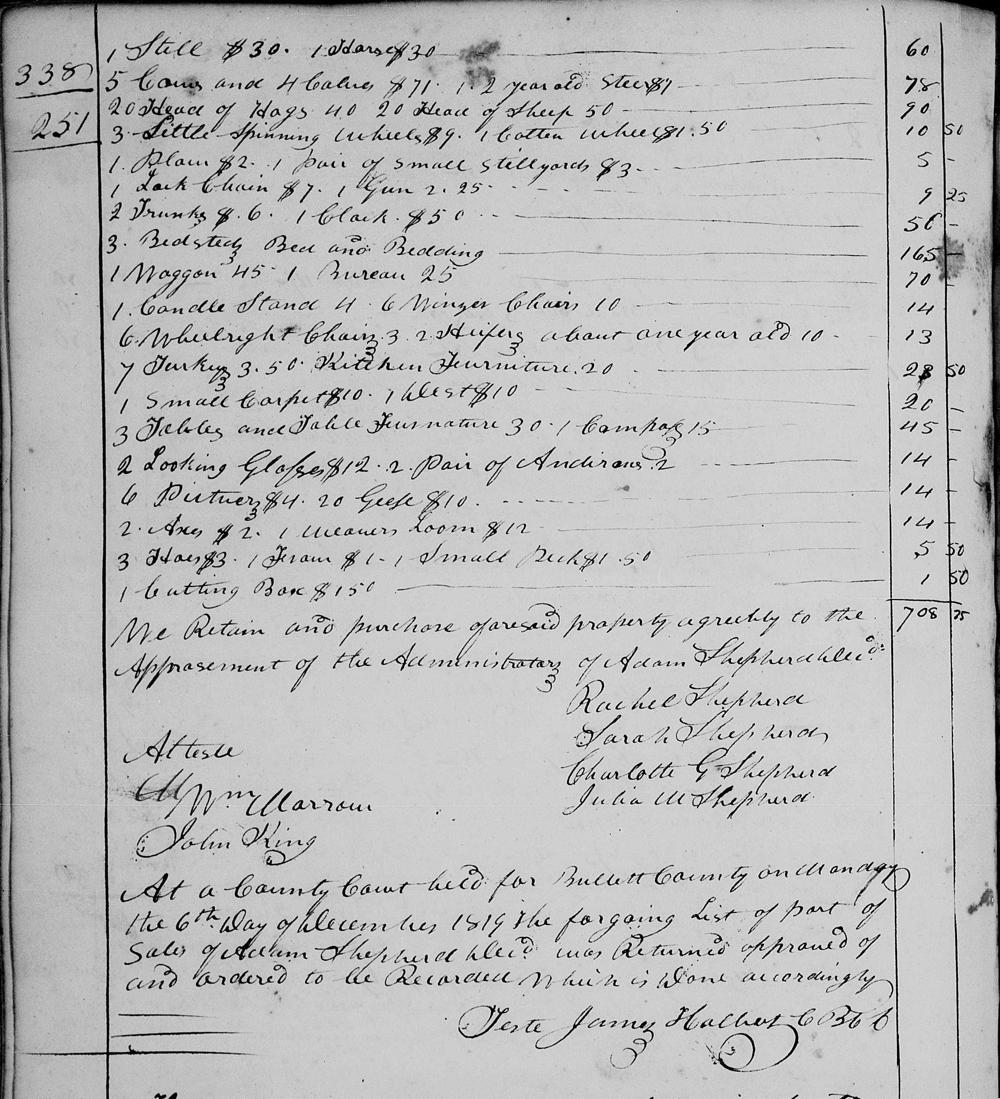 1 Still $30. 1 Horse $30 60
338
5 Cows and 4 Calves $71. 1. 2 year old Steer $7 78
20 Head of Hogs 40 20 Head of Sheep 50 90
251
3 Little Spinning Wheels $9. 1 Cotten Wheel $1.50 10 50
1. Plain $2. 1 pair of Small Stillyards $3 5 -
1 Lock Chain $7. 1 Gun 2.25 9 25
2 Trunks $.6. 1 Clock. $50 56 -
3. Bedsteds Bed and Bedding 165 -
1 Waggon 45. 1 Bureau 25 70 -
1. Candle Stand 4. 6 Winzer Chairs 10 14 -
6. Wheelright Chairs 3. 2 Heifers about one year old 10 13
7 Turkeys 3.50. Kitchen Furniture. 20 23 50
1 Small Carpet $10. 1 Desk $10 20 -
3 Tables and Table Furnature 30. 1 Compass 15 45 -
2 Looking Glasses $12. 2. Pair of Andirons .2 14 -
6 Pictures $4. 20 Geese $10. 14 -
2. Axes $2. 1 Weavers Loom $12 14 -
3 Hoes $3. 1 Fram $1. 1 Small $1.50 5 50
1 Cutting Box $150 1 50
We Retain and purchase aforesaid property agreebly to the 708 25
Apprasement of the Administrators of Adam Shepherd Decd.
Rachel Shepherd
Sarah Shepherd
Atteste
Charlotte G Shepherd
Wm Marrow
Julia M Shepherd
John King
At a County Court held for Bullett County on Monday
the 6th Day of December 1819 the forgoing List of part of
Sales of Adam Shepherd Decd was Returned approved of
and ordered to be Recorded Which is Done accordingly
Teste James Halbert C B C C